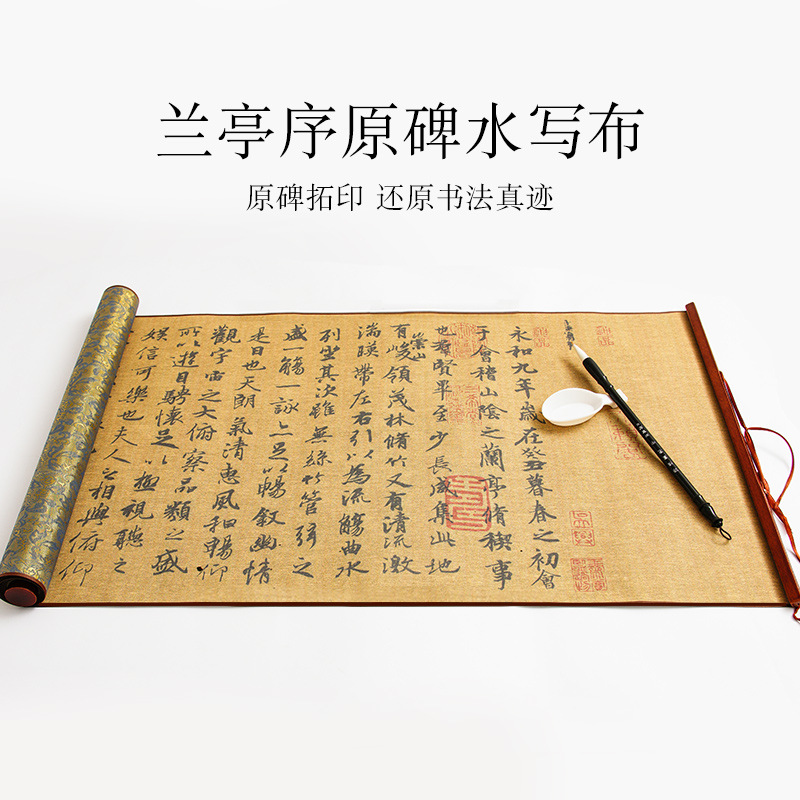 兰亭序原碑水写布
原碑拓印 还原书法真迹
永和九年歲在癸丑暮春之初會
于會稽山陰之蘭亭脩稧事
也羣賢畢至少長咸集此地
有崇山峻領茂林脩竹又有清流激
湍暎帶左右引以為流觴曲水
列坐其次雖無絲竹管弦之
盛一觴一詠亦足以暢敘幽情
是日也天朗氣清惠風和暢仰
觀宇宙之大俯察品類之盛
所以遊目騁懷足以極視聽之
娛信可樂也夫人之相與俯仰